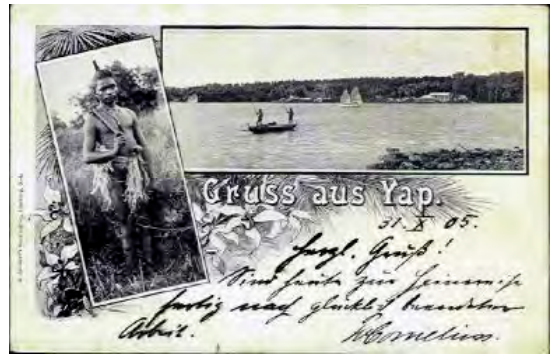 Gruss aus Yap.
31. X 05.
Herzl. Gruß!
Sind heute zur Heimreise
fertig nach glücklich beendeter
Arbeit.